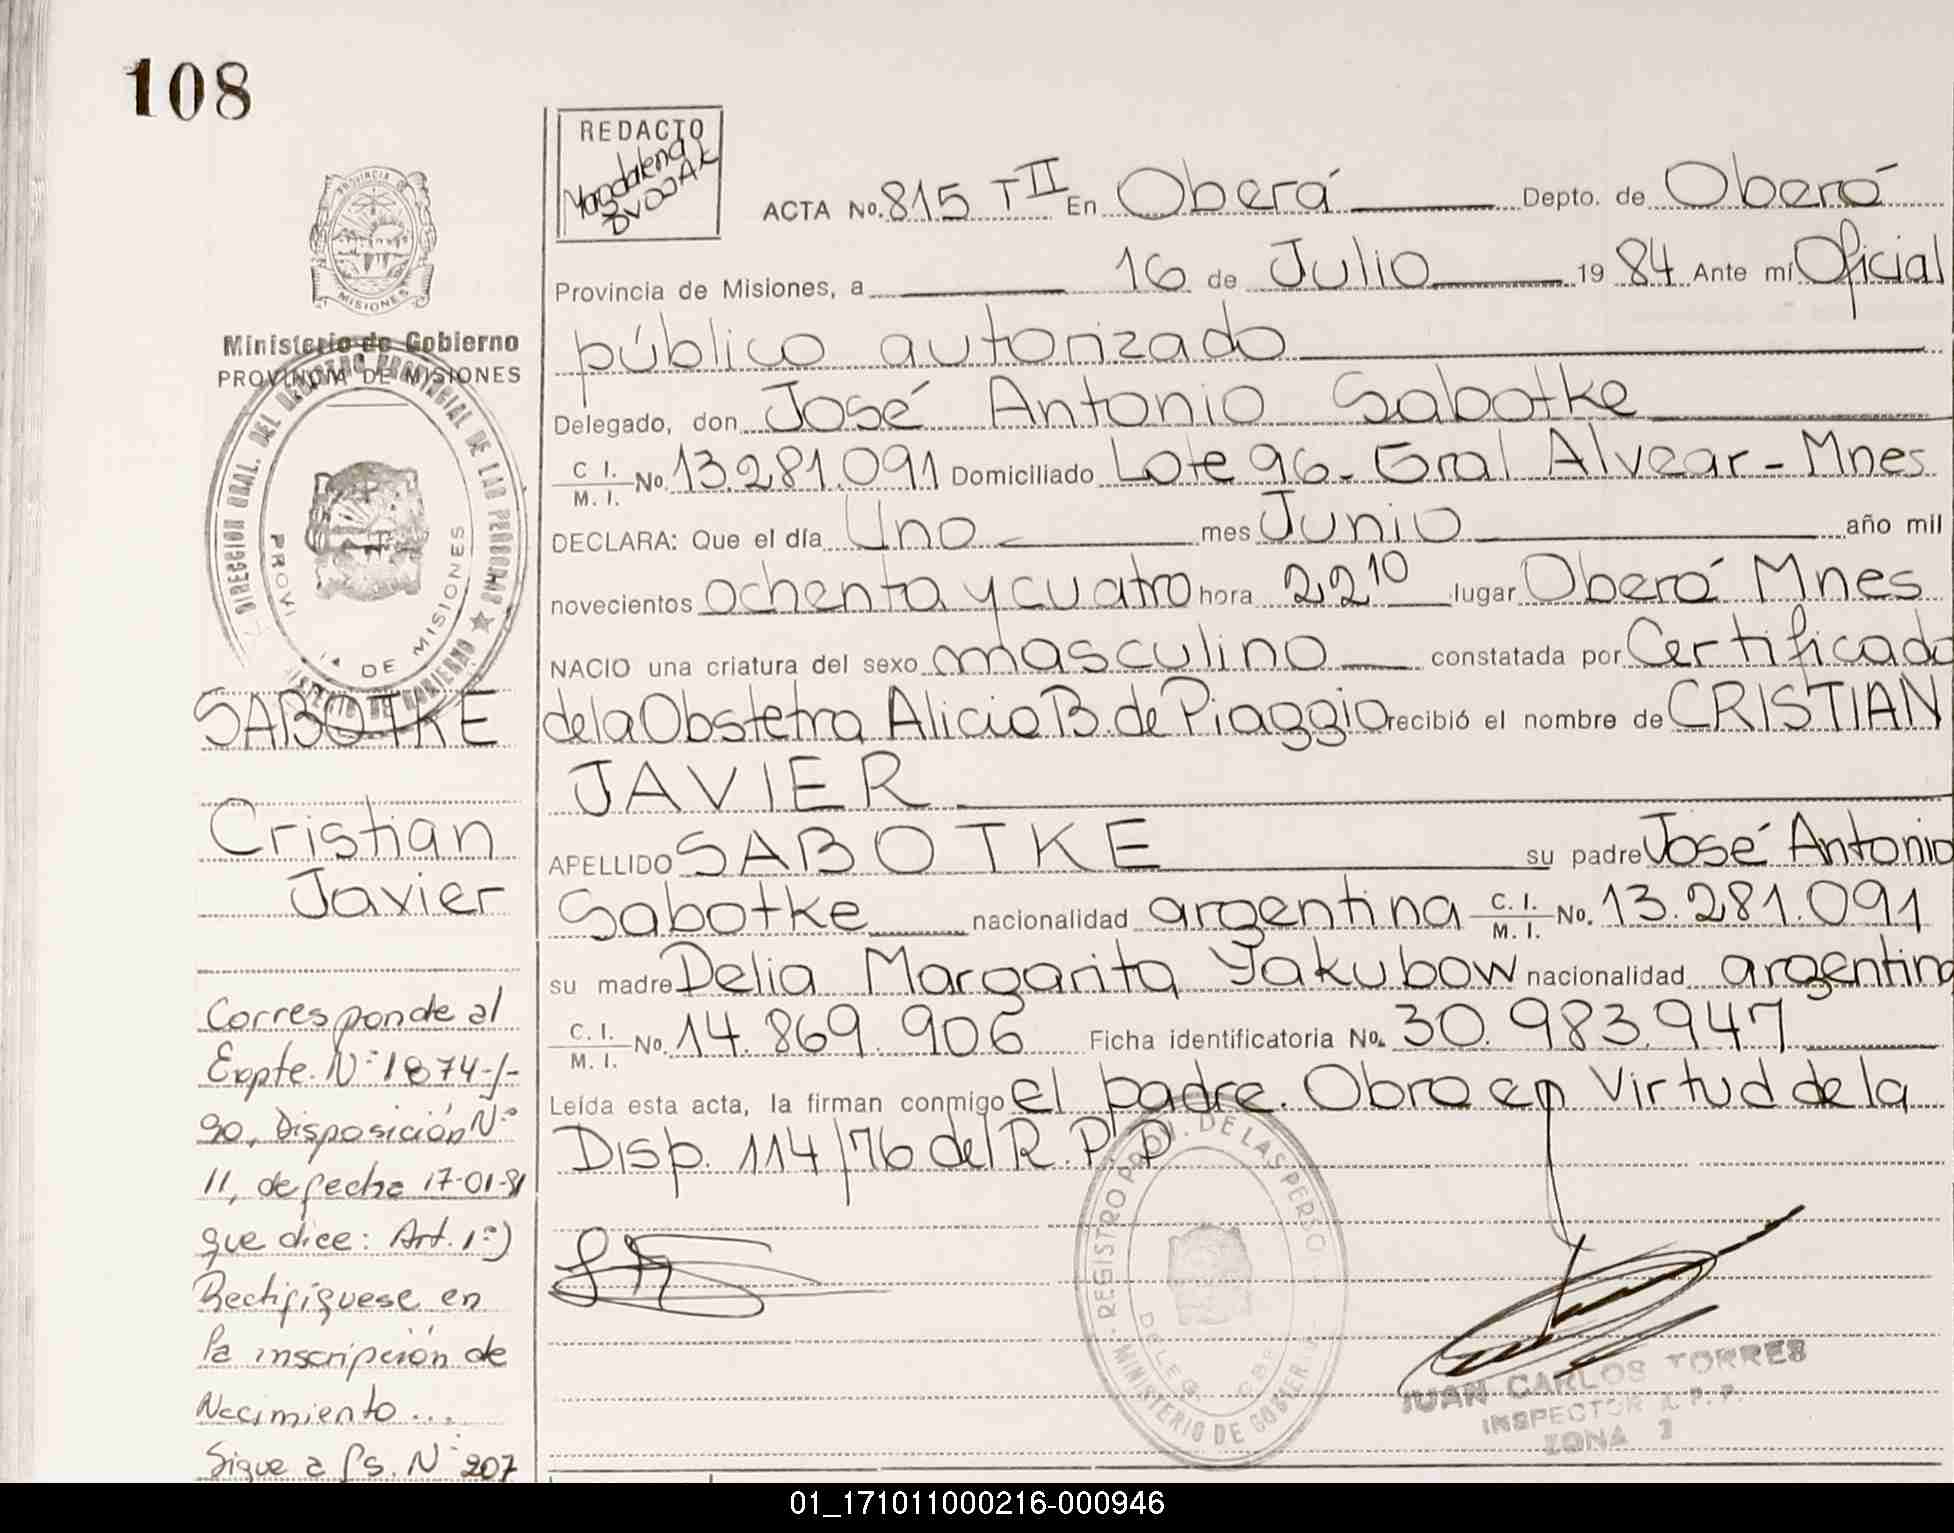 108
REDACTO
Magdalena
DVOJAK
ACTA No. 815 TII En Oberá Depto. de Oberá
Provincia de Misiones, a 16 de Julio 19 84 Ante mí Oficial
público autorizado
Delegado, don José Antonio Sabotke
C. I. / M. I. No. 13.281.091 Domiciliado Lote 96- Gral Alvear - Mnes
DECLARA: Que el día Uno mes Junio año mil
novecientos ochenta y cuatro hora 22 10 lugar Oberá Mnes
NACIO una criatura del sexo masculino constatada por Certificado
de la Obstetra Alicia B. de Piaggio recibió el nombre de CRISTIAN
JAVIER
APELLIDO SABOTKE su padre José Antonio
Sabotke nacionalidad argentina C. I. / M. I. No. 13.281.091
su madre Delia Margarita Yakubow nacionalidad argentina
C. I. / M. I. No. 14.869.906 Ficha identificatoria No. 30.983.947
Leída esta acta, la firman conmigo el padre. Obro en Virtud de la
Disp. 114/76 del R.P.P
PROVINCIA DE
MISIONES
Ministerio de Gobierno
PROVINCIA DE MISIONES
DIRECCION GRAL. DEL REGISTRO PROVINCIAL DE LAS PERSONAS
MINISTERIO DE GOBIERNO
DE MISIONES
SABOTKE
Cristian
Javier
Corresponde al
Expte. Nº 1874-/-
90, Disposición Nº
11, de fecha 17-01-91
que dice: Art. 1º)
Rectifíquese en
la inscripción de
Nacimiento...
Sigue a fs. Nº 207
REGISTRO PROV. DE LAS PERSONAS
MINISTERIO DE GOBIERNO
JUAN CARLOS TORRES
INSPECTOR R. P. P.
ZONA 2
01_171011000216-000946